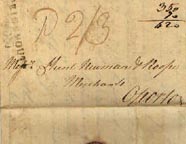 P 2/3
350
70
420
Mess.rs Hunt Newman & Roope
Merchants
Oporto